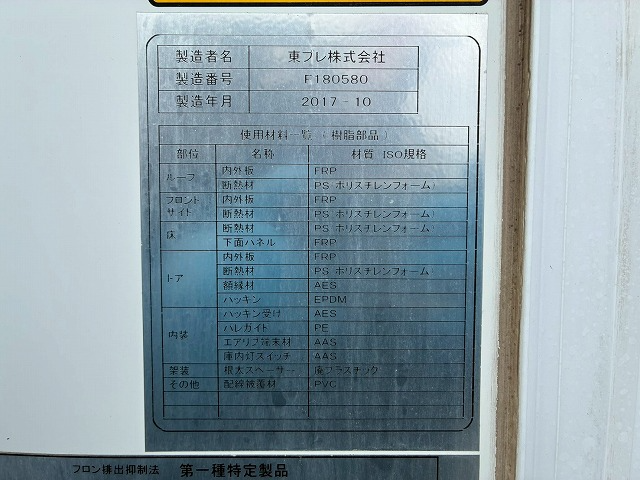 製造者名 東プレ株式会社
製造番号 F180580
製造年月 2017 - 10
使用材料一覧 ( 樹脂部品 )
部位 名称 材質 ISO規格
ルーフ 内外板 FRP
断熱材 PS(ポリスチレンフォーム)
フロント サイド 内外板 FRP
断熱材 PS(ポリスチレンフォーム)
床 断熱材 PS(ポリスチレンフォーム)
下面パネル FRP
ドア 内外板 FRP
断熱材 PS(ポリスチレンフォーム)
額縁材 AES
パッキン EPDM
内装 パッキン受け AES
パレガイド PE
エアリブ端末材 AAS
庫内灯スイッチ AAS
架装 根太スペーサー 廃プラスチック
その他 配線被覆材 PVC
フロン排出抑制法 第一種特定製品